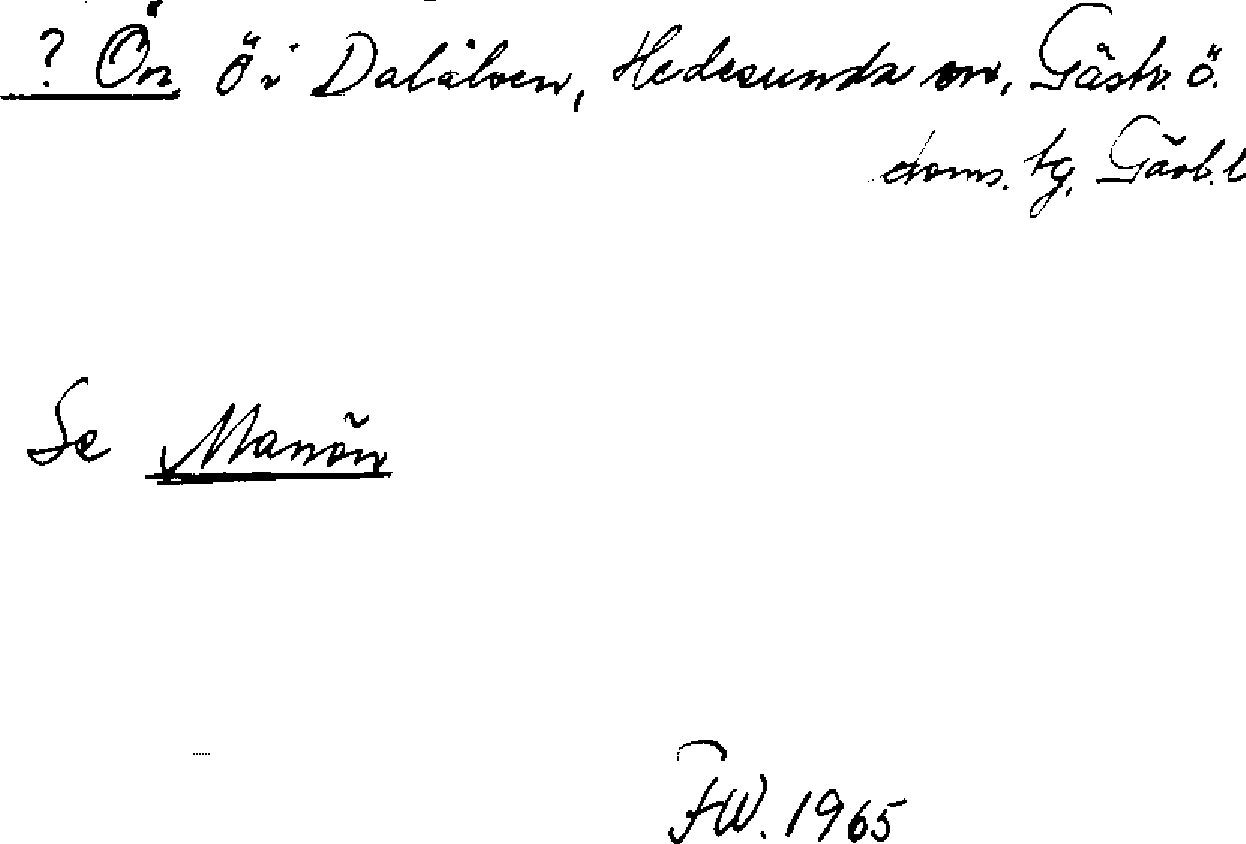 ? Ön ö i Dalälven, Hedesunda sn, Gästr. ö.
doms. tg. Gävl. l
Se Manön
FW. 1965